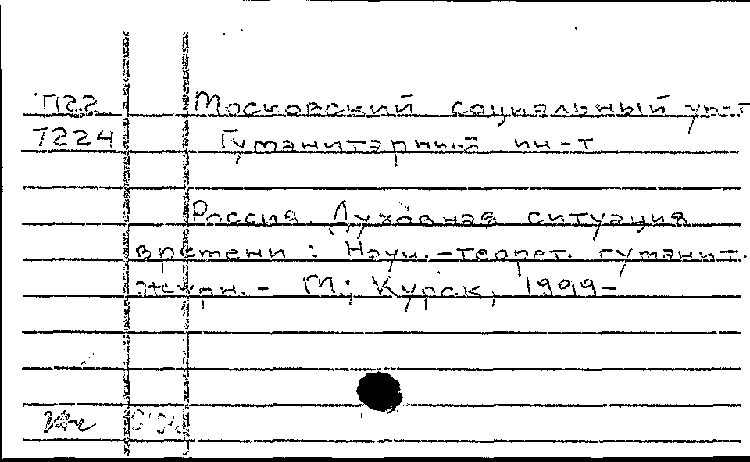 П22 Московский социальный ун-т
7224 Гуманитарный ин-т
Россия. Духовная ситуация
времени : Науч.-теорет. гуманит.
журн. - М.; Курск, 1999-